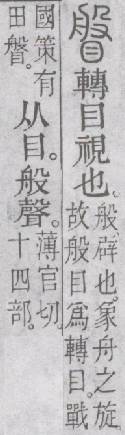 䀨轉目視也。般辟也。象舟之旋故般目爲轉目。戰
國策有田䀨。从目。般聲。薄官切十四部。